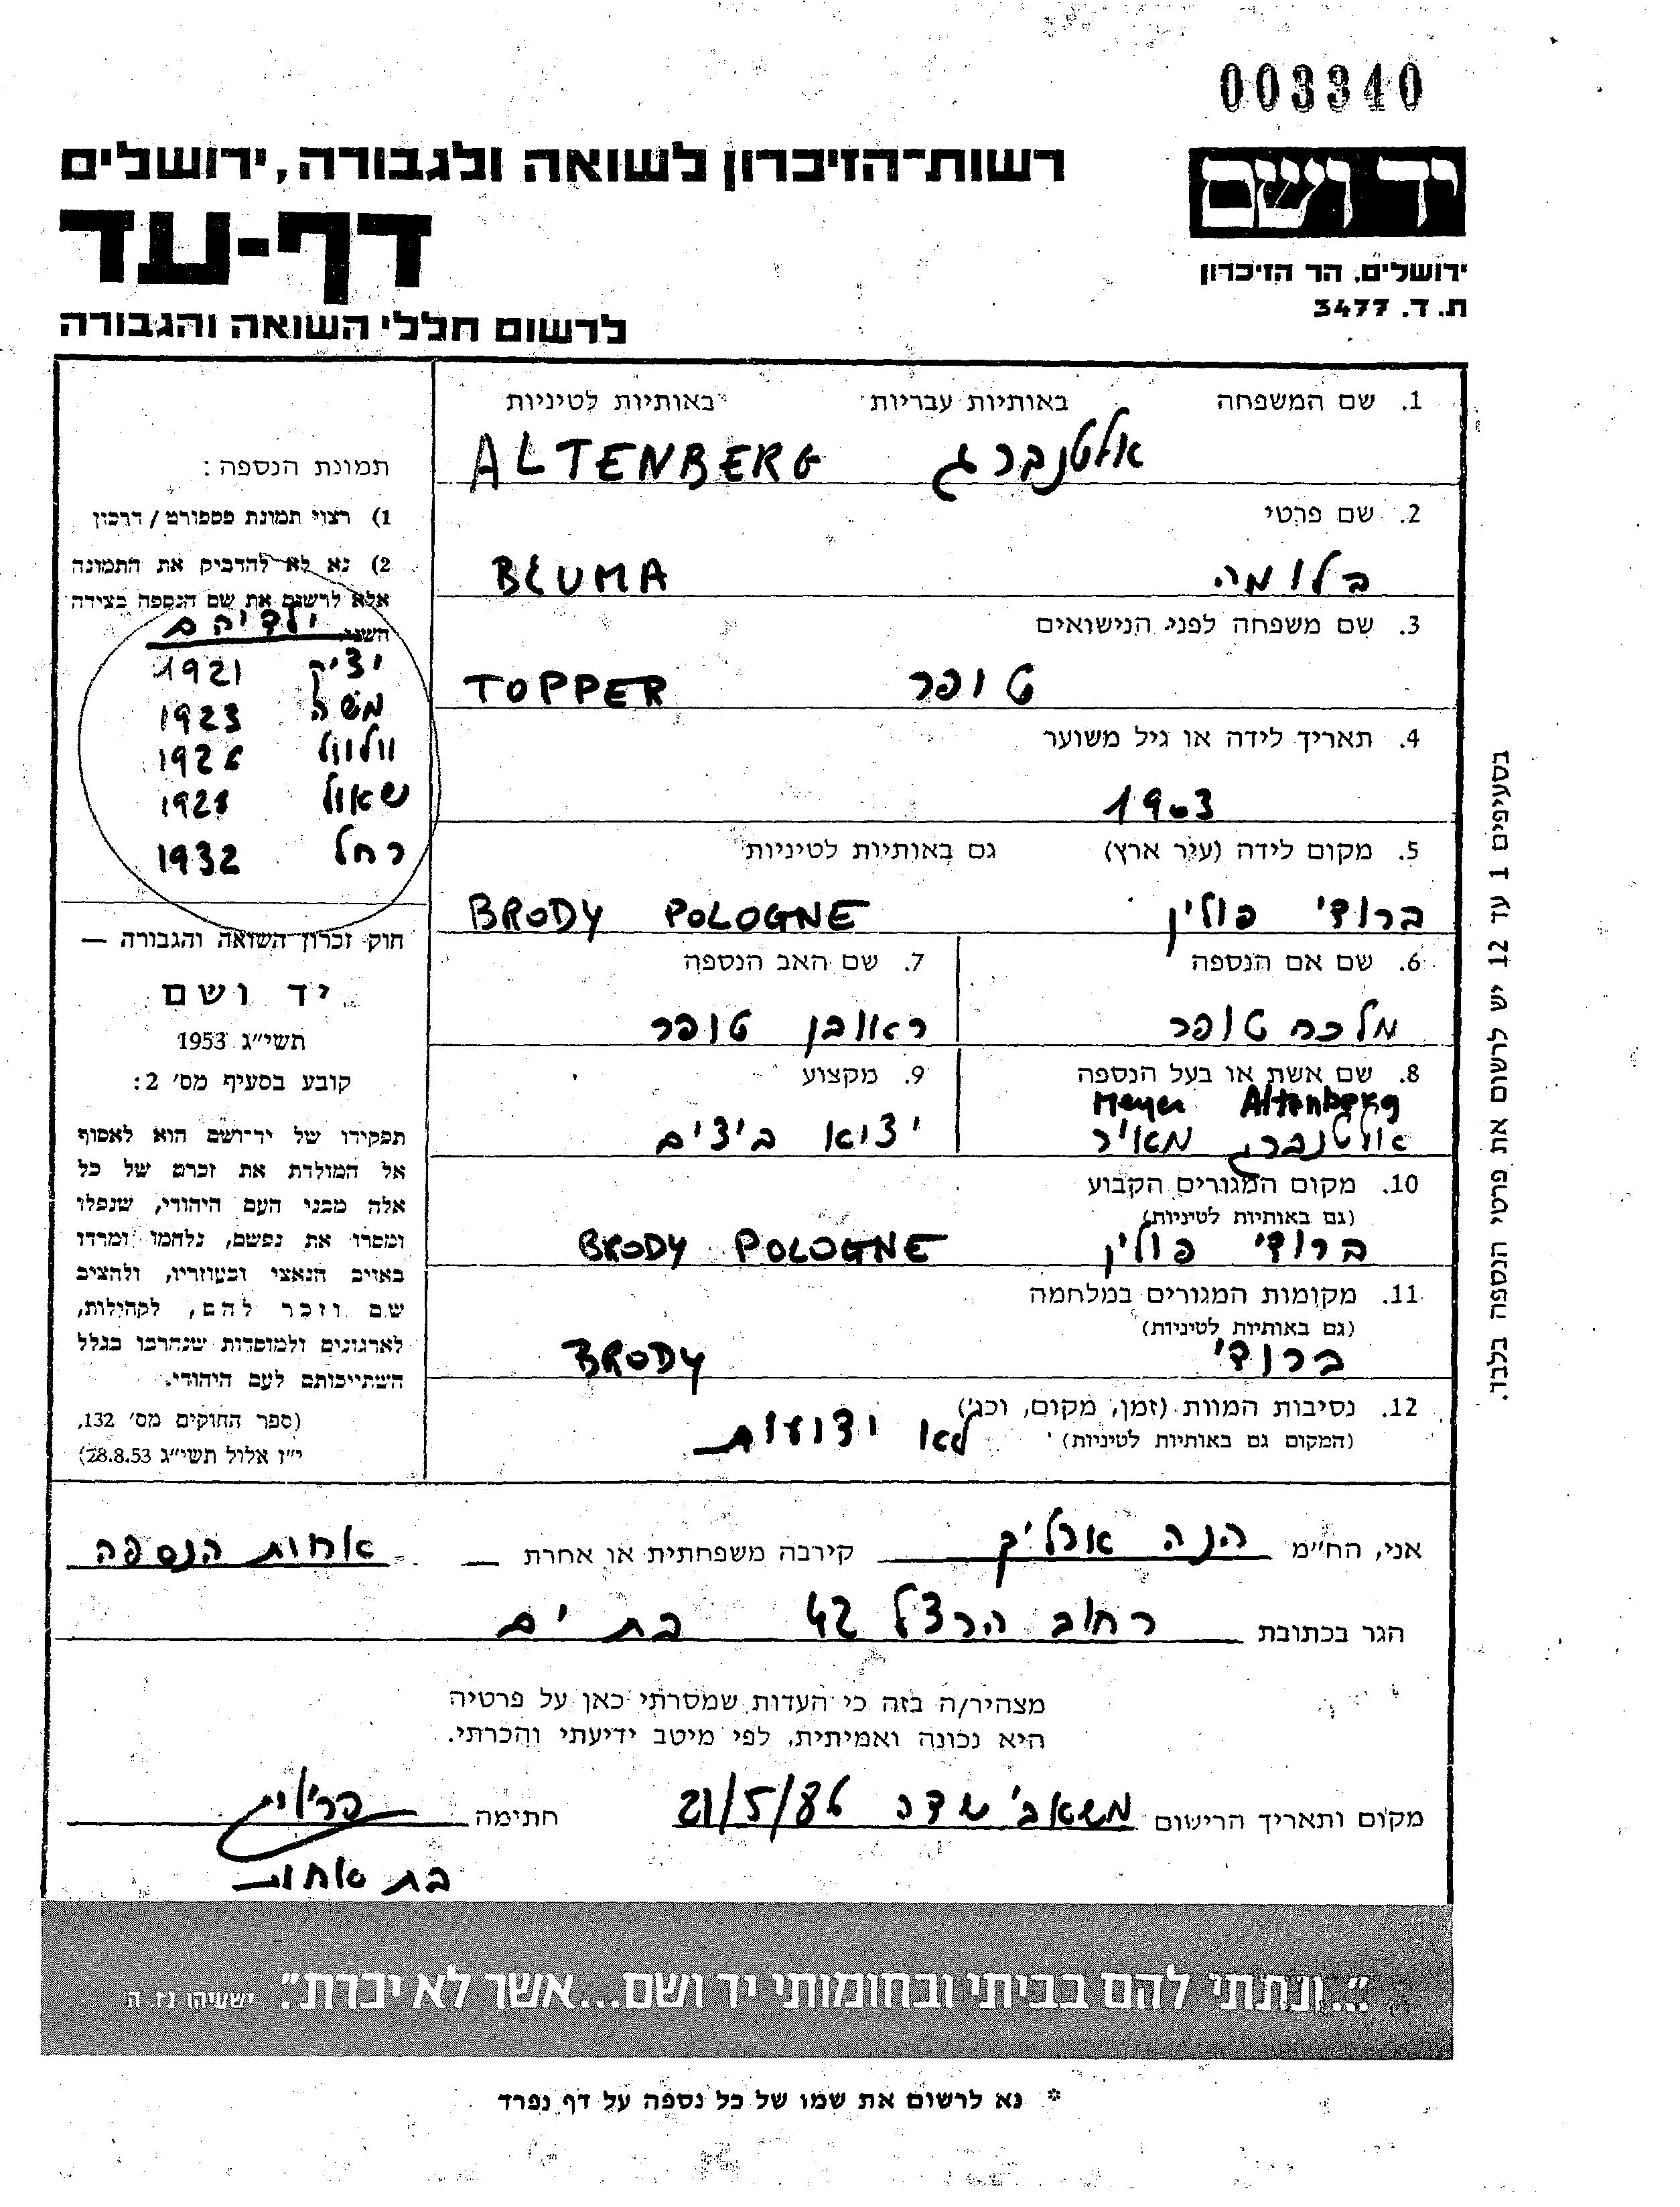 003340
יד ושם
ירושלים, הר הזיכרון
ת. ד. 3477
רשות-הזיכרון לשואה ולגבורה, ירושלים
דף-עד
לרשום חללי השואה והגבורה
1. שם המשפחה באותיות עבריות באותיות לטיניות
אלטנברג ALTENBERG
2. שם פרטי
בלומה BLUMA
3. שם משפחה לפני הנישואים
טופר TOPPER
4. תאריך לידה או גיל משוער
1903
5. מקום לידה (עיר ארץ) גם באותיות לטיניות
ברודי פולין BRODY POLOGNE
6. שם אם הנספה
מלכה טופר
7. שם האב הנספה
ראובן טופר
8. שם אשת או בעל הנספה
Meyer Altenberg
אלטנברג מאיר
9. מקצוע
יצוא ביצים
10. מקום המגורים הקבוע
(גם באותיות לטיניות)
ברודי פולין BRODY POLOGNE
11. מקומות המגורים במלחמה
(גם באותיות לטיניות)
ברודי BRODY
12. נסיבות המוות (זמן, מקום, וכו')
(המקום גם באותיות לטיניות)
לא ידועות
תמונת הנספה:
1) רצוי תמונת פספורט / דרכון
2) נא לא להדביק את התמונה
אלא לרשום את שם הנספה בצידה
השני.
ילדיהם
יציק 1921
משה 1923
וולוול 1926
שאול 1928
רחל 1932
חוק זכרון השואה והגבורה —
יד ושם
תשי"ג 1953
קובע בסעיף מס' 2:
תפקידו של יד-ושם הוא לאסוף
אל המולדת את זכרם של כל
אלה מבני העם היהודי, שנפלו
ומסרו את נפשם, נלחמו ומרדו
באויב הנאצי ובעוזריו, ולהציב
שם וזכר להם, לקהילות,
לארגונים ולמוסדות שנחרבו בגלל
השתייכותם לעם היהודי.
(ספר החוקים מס' 132,
י"ז אלול תשי"ג 28.8.53)
בסעיפים 1 עד 12 יש לרשום את פרטי הנספה בלבד.
אני, הח"מ הנה קירבה משפחתית או אחרת — אחות הנספה
הגר בכתובת רחוב הרצל 42 בת ים
מצהיר/ה בזה כי העדות שמסרתי כאן על פרטיה
היא נכונה ואמיתית, לפי מיטב ידיעתי והכרתי.
מקום ותאריך הרישום משאבי שדה 21/5/86 חתימה
בת אחות
"...ונתתי להם בביתי ובחומותי יד ושם...אשר לא יכרת". ישעיהו נו, ה
* נא לרשום את שמו של כל נספה על דף נפרד